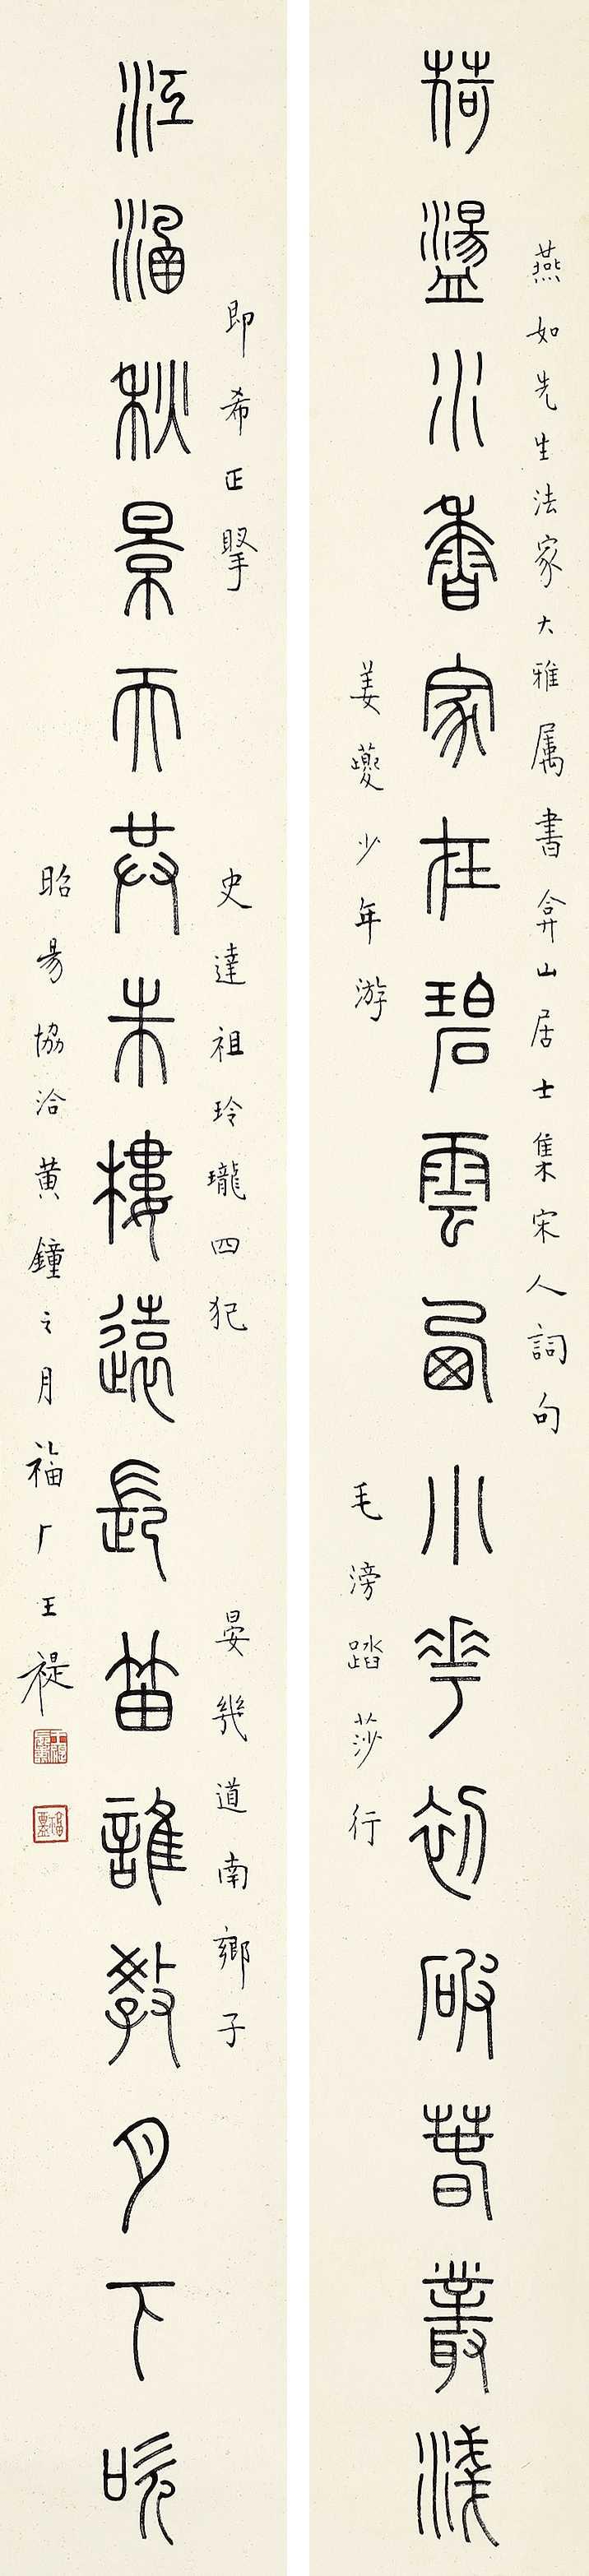 燕如先生法家大雅属書弇山居士集宋人詞句
荷盪水香家在碧雲西小花初破春叢淺
姜夔少年游
毛滂踏莎行
即希正掔
史達祖玲瓏四犯
晏幾道南鄉子
江涵秋景天共朱樓遠長笛誰教月下吹
昭昜協洽黄鐘之月福厂王禔
福盦